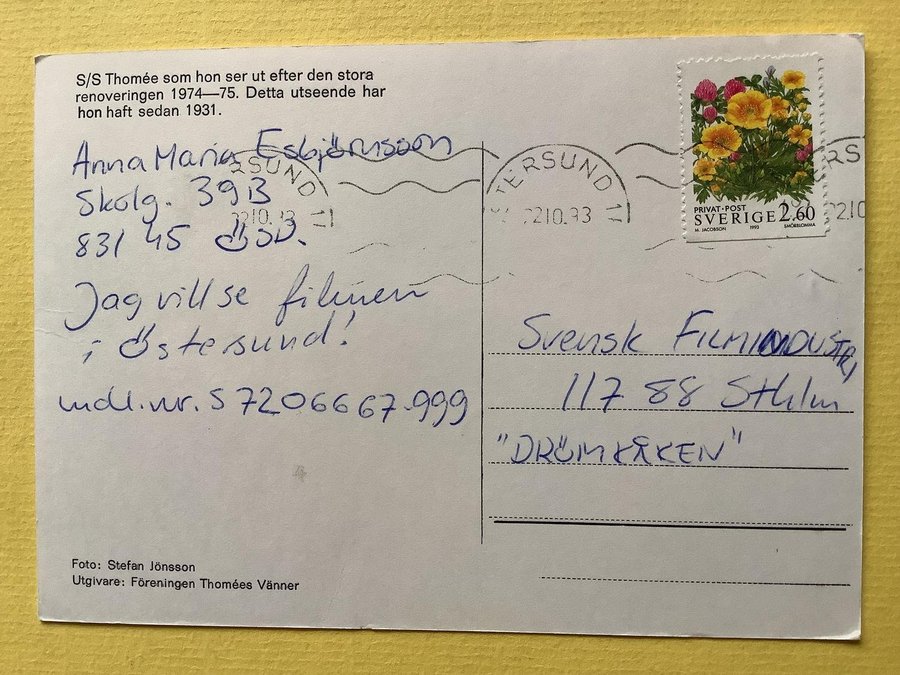 S/S Thomée som hon ser ut efter den stora
renoveringen 1974—75. Detta utseende har
hon haft sedan 1931.
Anna Maria Esbjörnsson
Skolg. 39B
831 45 ÖSD.
Jag vill se filmen
i Östersund!
mdl.nr. S 7206667-999
Foto: Stefan Jönsson
Utgivare: Föreningen Thomées Vänner
RSUND
2210.93 11
TERSUND
2210.93 11
RS
2210
PRIVAT·POST
SVERIGE 2.60
M. JACOBSON 1993 SMÖRBLOMMA
Svensk Filmindustri
117 88 Sthlm
"DRÖMKÅKEN"